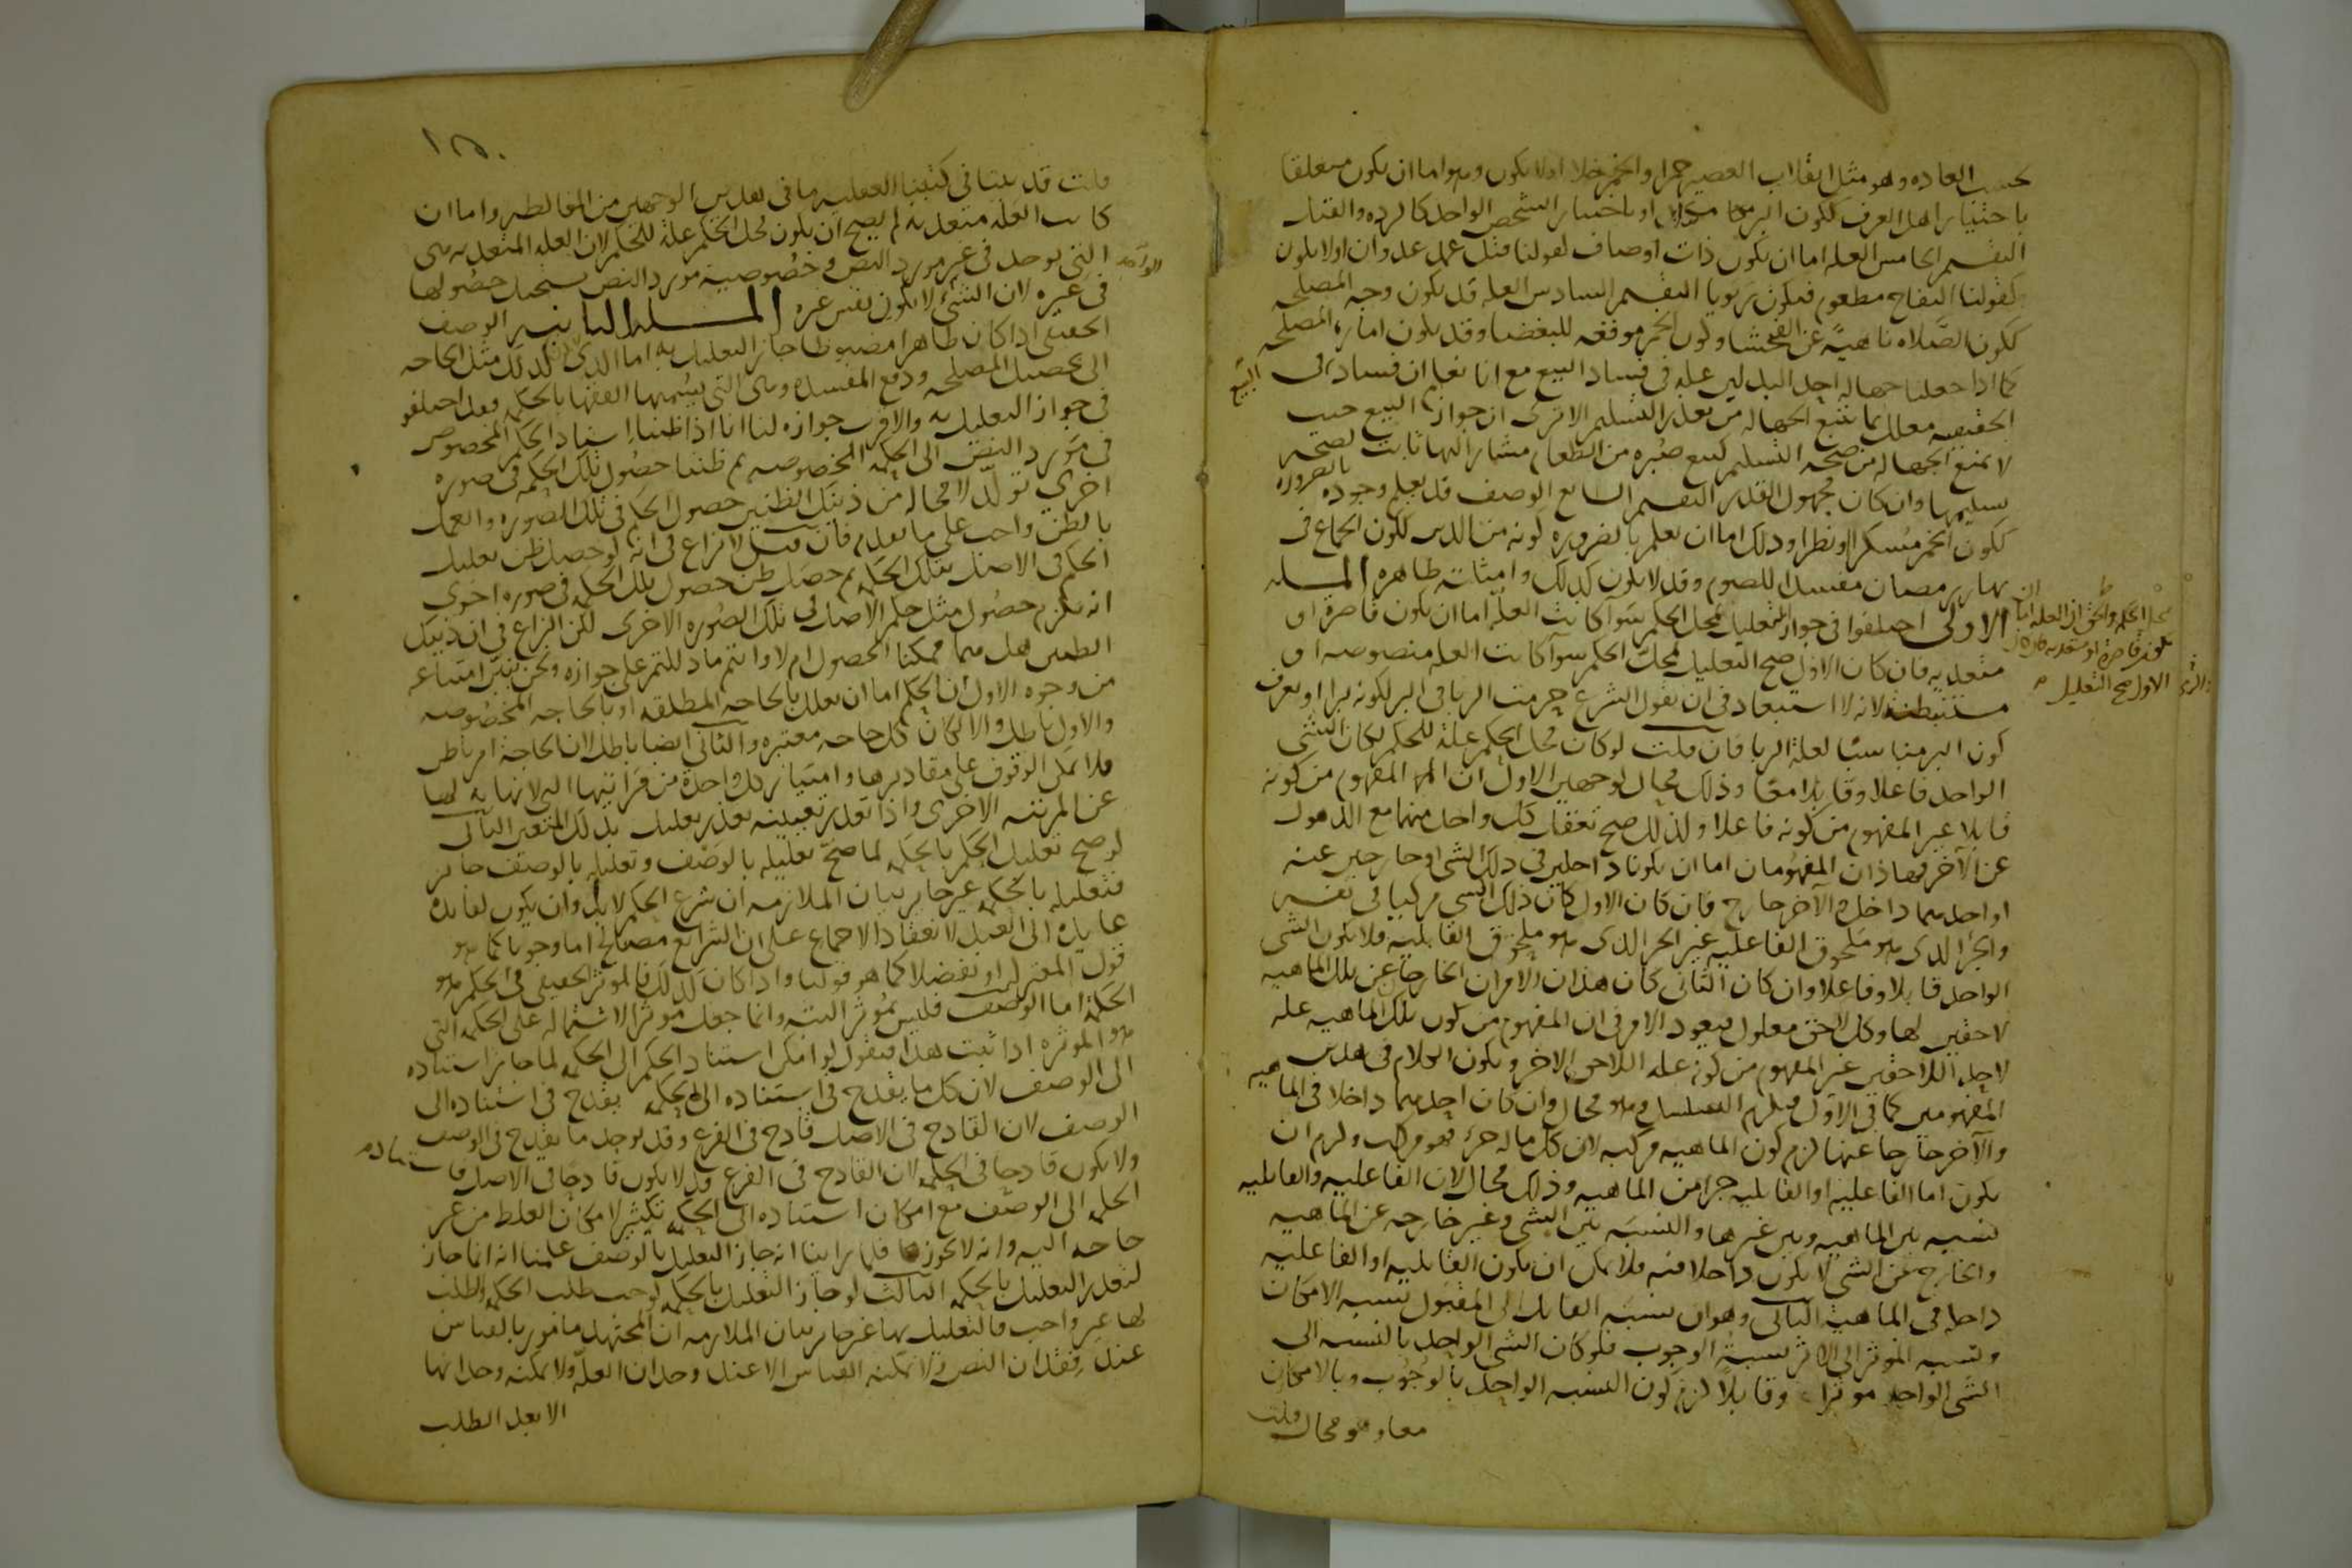 بحسب العاده وهو مثل انقلاب العصير خمرا والخمر خلا اولا يكون وهو اما ان يكون متعلقا
باختيار اهل العرف ككون البر مكيلا او باختيار الشخص الواحد كالرده والقتل
التقسيم الخامس العله اما ان يكون ذات اوصاف كقولنا قتل عمد عدوان اولا يكون
كقولنا التفاح مطعوم فيكون ربويا التقسيم السادس العله قد يكون وجه المصلحه
ككون الصلاه ناهية عن الفحشا وكون الخمر موقعه للبغضا وقد يكون اماره المصلحه
كما اذا جعلنا جهاله احد البدلين عله في فساد البيع مع انا نعلم ان فساد البيع في
الحقيقه معلل بما يتبع الجهاله من تعذر التسليم الا ترى ان جواز البيع حيث
لا تمنع الجهاله من صحه التسليم كبيع صبره من الطعام مشار اليها ثابت لصحه
تسليمها وان كان مجهول القدر التقسيم السابع الوصف قد يعلم وجوده بالضروره
ككون الخمر مسكرا او نظرا وذلك اما ان نعلم بالضروره كونه من الدين ككون الجماع في
نهار رمضان مفسدا للصوم وقد لا يكون كذلك وامثلته ظاهره المسله
الاولى اختلفوا في جواز التعليل بمحل الحكم سوآ كانت العله اما ان يكون قاصره او
متعديه فان كان الاول صح التعليل بمحل الحكم سوآ كانت العله منصوصه او
مستنبطه لانه لا استبعاد في ان يقول الشرع حرمت الربا في البر لكونه برا او نعرف
كون البر مناسبا لعلة الربا فان قلت لو كان محل الحكم علة للحكم لكان الشي
الواحد فاعلا وقابلا معا وذلك محال لوجهين الاول ان المفهوم من كونه
قابلا غير المفهوم من كونه فاعلا ولذلك صح تعقل كل واحد منهما مع الذهول
عن الآخر فهاذان المفهومان اما ان يكونا داخلين في ذلك الشي او خارجين عنه
او احدهما داخل والآخر خارج فان كان الاول كان ذلك الشي مركبا في نفسه
والجزء الذي هو ملحوق الفاعليه غير الجزء الذي هو ملحوق القابليه فلا يكون الشي
الواحد قابلا وفاعلا وان كان الثاني كان هذان الامران الخارجان عن تلك الماهيه
لاحقين لها وكل لاحق معلول فيعود الامر في ان المفهوم من كون تلك الماهيه عله
لاحد اللاحقين غير المفهوم من كونه عله اللاحق الاخر ويكون الكلام في هذين
المفهومين كما في الاول فيلزم التسلسل وهو محال وان كان احدهما داخلا في الماهيه
والآخر خارجا عنها لزم كون الماهيه مركبه لان كل ما له جزء فهو مركب ولزم ان
يكون اما الفاعليه او القابليه جزا من الماهيه وذلك محال لان الفاعليه والقابليه
نسبه بين الماهيه وبين غيرها والنسبه بين الشي وغيره خارجه عن الماهيه
والخارج عن الشي لا يكون داخلا فيه فلا يمكن ان يكون القابليه او الفاعليه
داخله في الماهيه الثاني وهو ان نسبه القابل الى المقبول نسبه الامكان
ونسبه المؤثر الى الاثر نسبة الوجوب فلو كان الشي الواحد بالنسبه الى
الشي الواحد موثرا وقابلا لزم كون النسبه الواحد بالوجوب وبالامكان
معا وهو محال قلت
محل الحكم والحق ان العله اما ان
تكون قاصرة او متعديه
الاول صح التعليل
١٥٠
قلت قد بينا في كتبنا العقليه ما في هذين الوجهين من المغالطه واما ان
كانت العله متعديه لم يصح ان يكون محل الحكم علة للحكم لان العله المتعديه هي
التي توجد في غير مورد النص وخصوصية مورد النص يستحيل حصولها
في غيره لان الشي لا يكون نفس غيره المسله الثانيه الوصف
الحقيقي اذا كان ظاهرا مضبوطا جاز التعليل به اما الذي لا يكون كذلك مثل الحاجه
الى تحصيل المصلحه ودفع المفسده وهي التي يسميها الفقها بالحكمه فقد اختلفوا
في جواز التعليل به والاقرب جوازه لنا انا اذا ظننا استناد الحكم المخصوص
في مورد النص الى الحكمه المخصوصه ثم ظننا حصول تلك الحكمه في صوره
اخرى تولد لا محاله من ذينك الظنين حصول الحكم في تلك الصوره والعمل
بالظن واجب على ما تقدم فان قيل لا نزاع في انه لو حصل ظن تعليل
الحكم في الاصل بتلك الحكمه ثم حصل ظن حصول تلك الحكمه في صوره اخرى
انه يلزم حصول مثل حكم الاصل في تلك الصوره الاخرى لكن النزاع في ان ذينك
الظنين هل هما ممكنا الحصول ام لا وانتم ما دللتم على جوازه ونحن نبين امتناعه
من وجوه الاول ان الحكم اما ان يعلل بالحاجه المطلقه او بالحاجه المخصوصه
والاول باطل والا لكان كل حاجه معتبره والثاني ايضا باطل لان الحاجة امر باطن
فلا يمكن الوقوف على مقاديرها وامتياز كل واحدة من مراتبها التي لا نهايه لها
عن المرتبه الاخرى واذا تعذر تعيينه تعذر تعليل بذلك المتعين الثاني
لو صح تعليل الحكم بالحكمه لما صح تعليله بالوصف وتعليله بالوصف جائز
فتعليله بالحكمه غير جايز بيان الملازمه ان شرع الحكم لابد وان يكون لفايده
عايده الى العبد لانعقاد الاجماع على ان الشرايع مصالح اما وجوبا كما هو
قول المعتزله او تفضلا كما هو قولنا واذا كان كذلك فالموثر الحقيقي في الحكم هو
الحكمه اما الوصف فليس بموثر البته وانما جعل موثرا لاشتماله على الحكمه التي
هي الموثره اذا ثبت هذا فنقول لو امكن استناد الحكم الى الحكمه لما جاز استناده
الى الوصف لان كل ما يقدح في استناده الى الحكمه يقدح في استناده الى
الوصف لان القادح في الاصل قادح في الفرع وقد يوجد ما يقدح في الوصف
ولا يكون قادحا في الحكمه لان القادح في الفرع قد لا يكون قادحا في الاصل فاستناد
الحكم الى الوصف مع امكان استناده الى الحكمه تكثير لامكان الغلط من غير
حاجه اليه وانه لا يجوز فلما راينا انه جاز التعليل بالوصف علمنا انه انما جاز
لتعذر التعليل بالحكمه الثالث لو جاز التعليل بالحكمه لوجب طلب الحكمه والطلب
لها غير واجب فالتعليل بها غير جايز بيان الملازمه ان المجتهد مامور بالقياس
عند فقدان النص ولا يمكنه القياس الا عند وجدان العله ولا يمكنه وجدانها
الا بعد الطلب